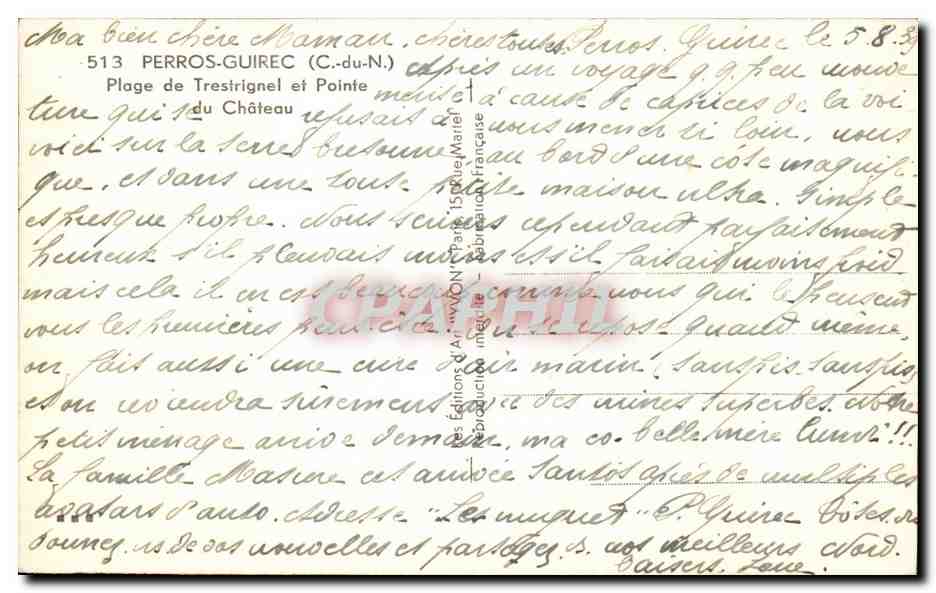 Ma bien chère Maman, chères toutes. Perros-Guirec le 5.8.39
513 PERROS-GUIREC (C.-du-N.)
Plage de Trestrignel et Pointe
du Château
Après un voyage q.q. peu mouve
menté à cause de caprices de la voi
ture qui se refusait à nous mener si loin, nous
voici sur la terre bretonne, au bord d'une côte magnifi-
que, et dans une toute petite maison ultra. simple
et presque propre. Nous serions cependant parfaitement
heureux s'il pleuvait moins et s'il faisait moins froid
mais cela il en est comme vous qui le pensent
vous les premières peut être. On se repose quand même,
on fait aussi une cure d'air marin (sanspis. sanspis)
et on reviendra sûrement avec des mines superbes. Notre
petit ménage arrive demain, ma co-belle mère lundi !!
La famille Masure est arrivée tantôt après de multiples
avatars d'auto. Adresse "Les muguet" P. Guirec Côtes du
Nord.
Donnez-ns de vos nouvelles et partagez-vs nos meilleurs
baisers.
Les Éditions d'Art "YVON", Paris, 15, Rue Martel
Reproduction interdite - Fabrication Française
CPAPHIL